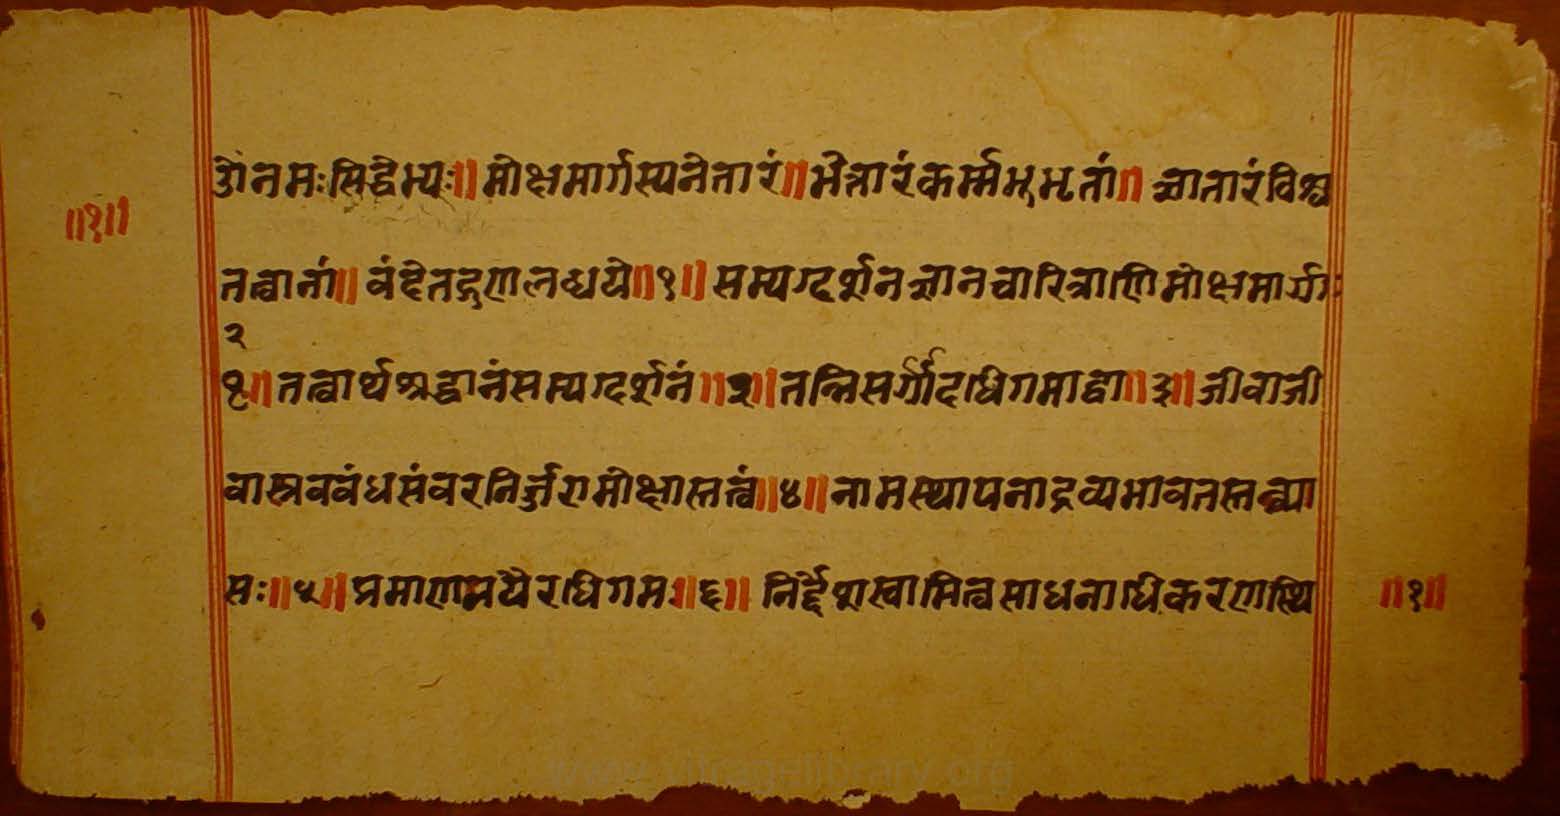 ॥१॥
ॐ नमः सिद्धेभ्यः॥ मोक्षमार्गस्य नेतारं॥ भेत्तारं कर्म्मभूभृतां॥ ज्ञातारं विश्व
तत्वानां॥ वंदे तद्गुणलब्धये॥१॥ सम्यग्दर्शनज्ञानचारित्राणि मोक्षमार्गः
२
१॥ तत्वार्थश्रद्धानं सम्यग्दर्शनं॥२॥ तन्निसर्गादधिगमाद्वा॥३॥ जीवाजी
वास्रवबंधसंवरनिर्ज्जरामोक्षास्तत्वं॥४॥ नामस्थापनाद्रव्यभावतस्तन्न्या
सः॥५॥ प्रमाणनयैरधिगमः॥६॥ निर्द्देशस्वामित्वसाधनाधिकरणस्थि
॥१॥
www.vitragelibrary.org